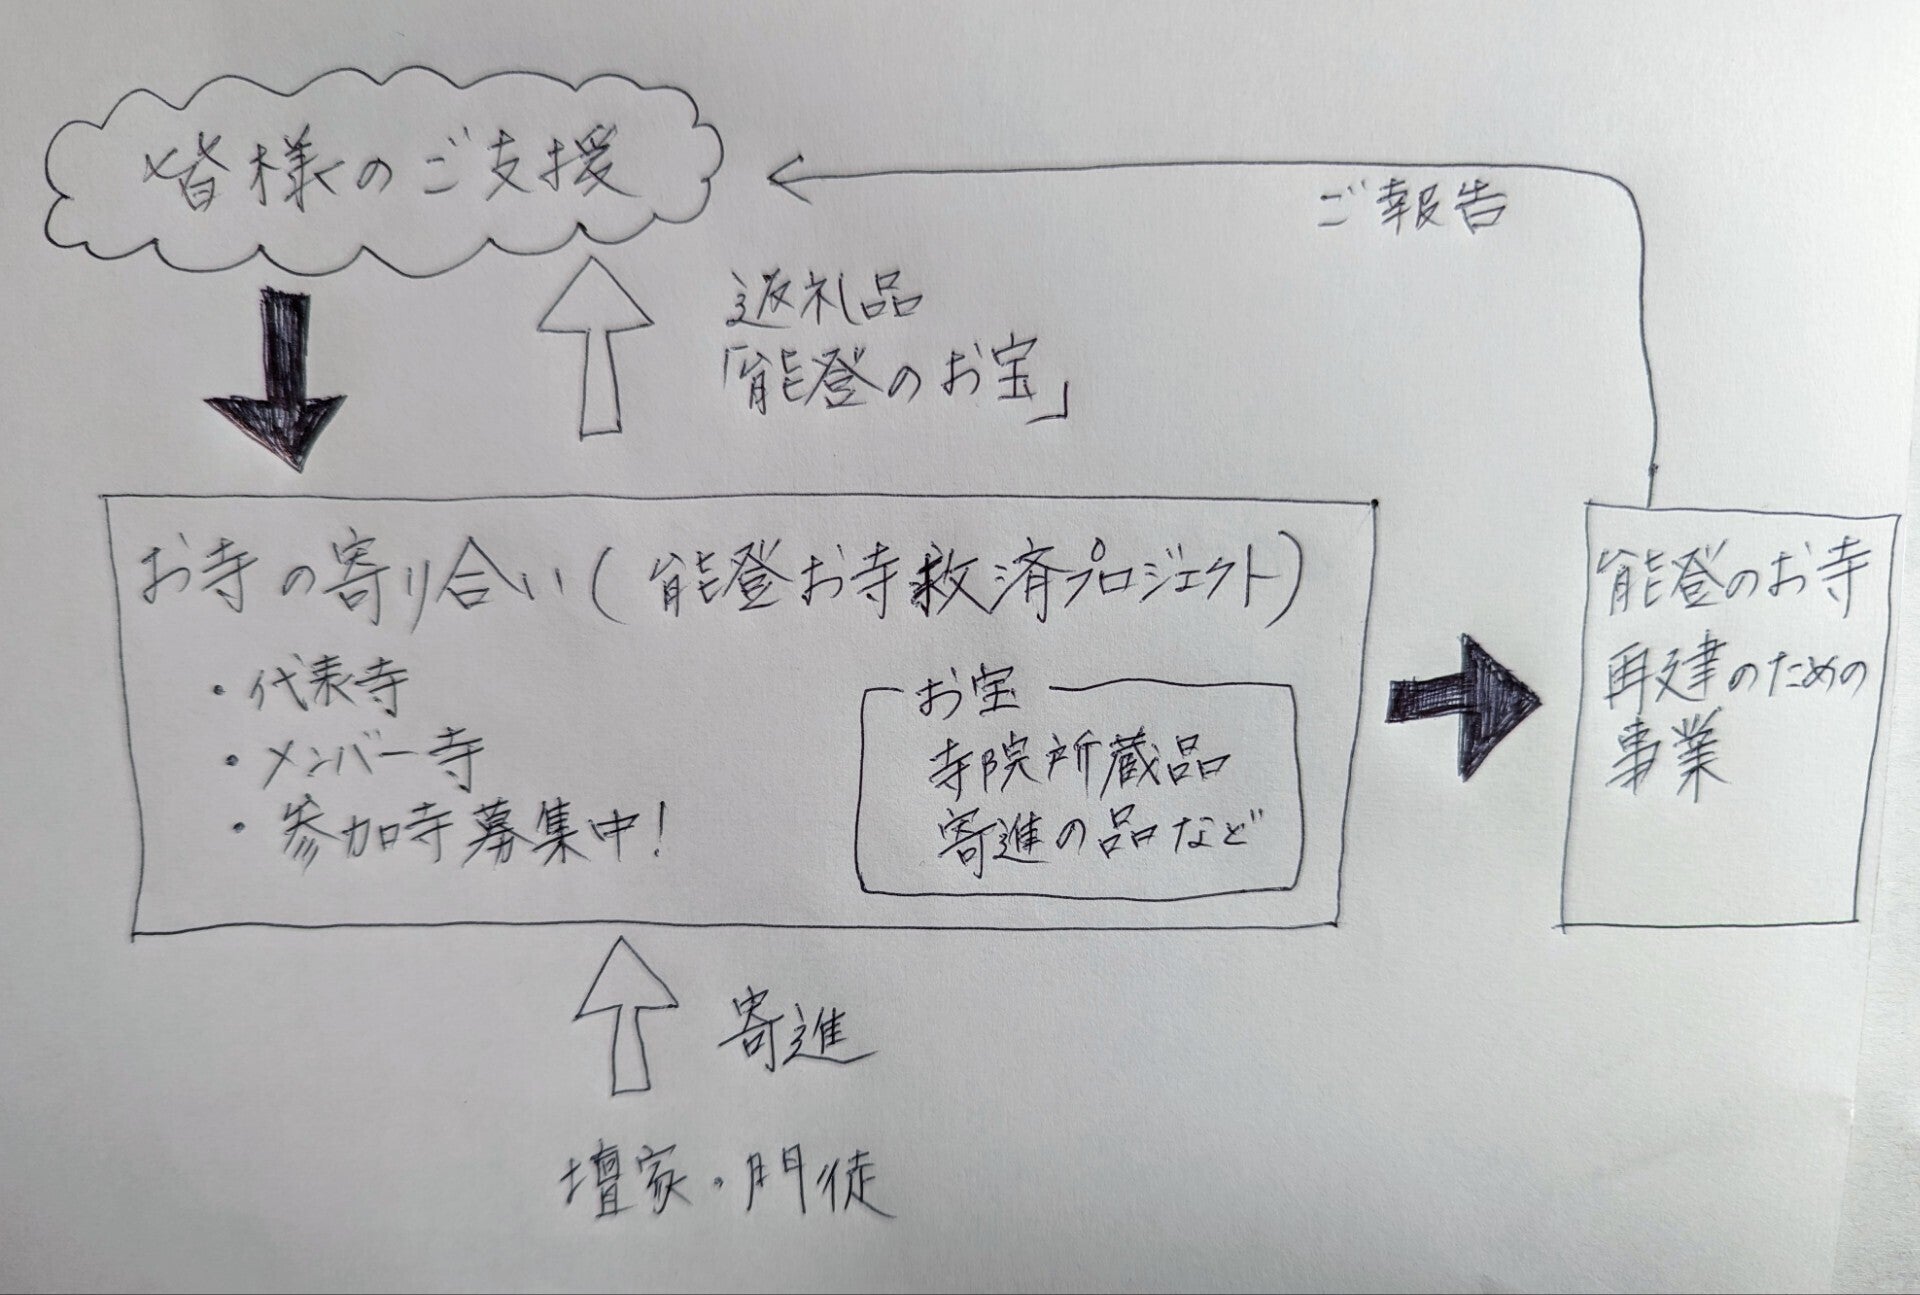 皆様のご支援
ご報告
返礼品
「能登のお宝」
お寺の寄り合い(能登お寺救済プロジェクト)
・代表寺
・メンバー寺
・参加寺募集中!
お宝
寺院所蔵品
寄進の品など
能登のお寺
再建のための
事業
寄進
壇家・門徒